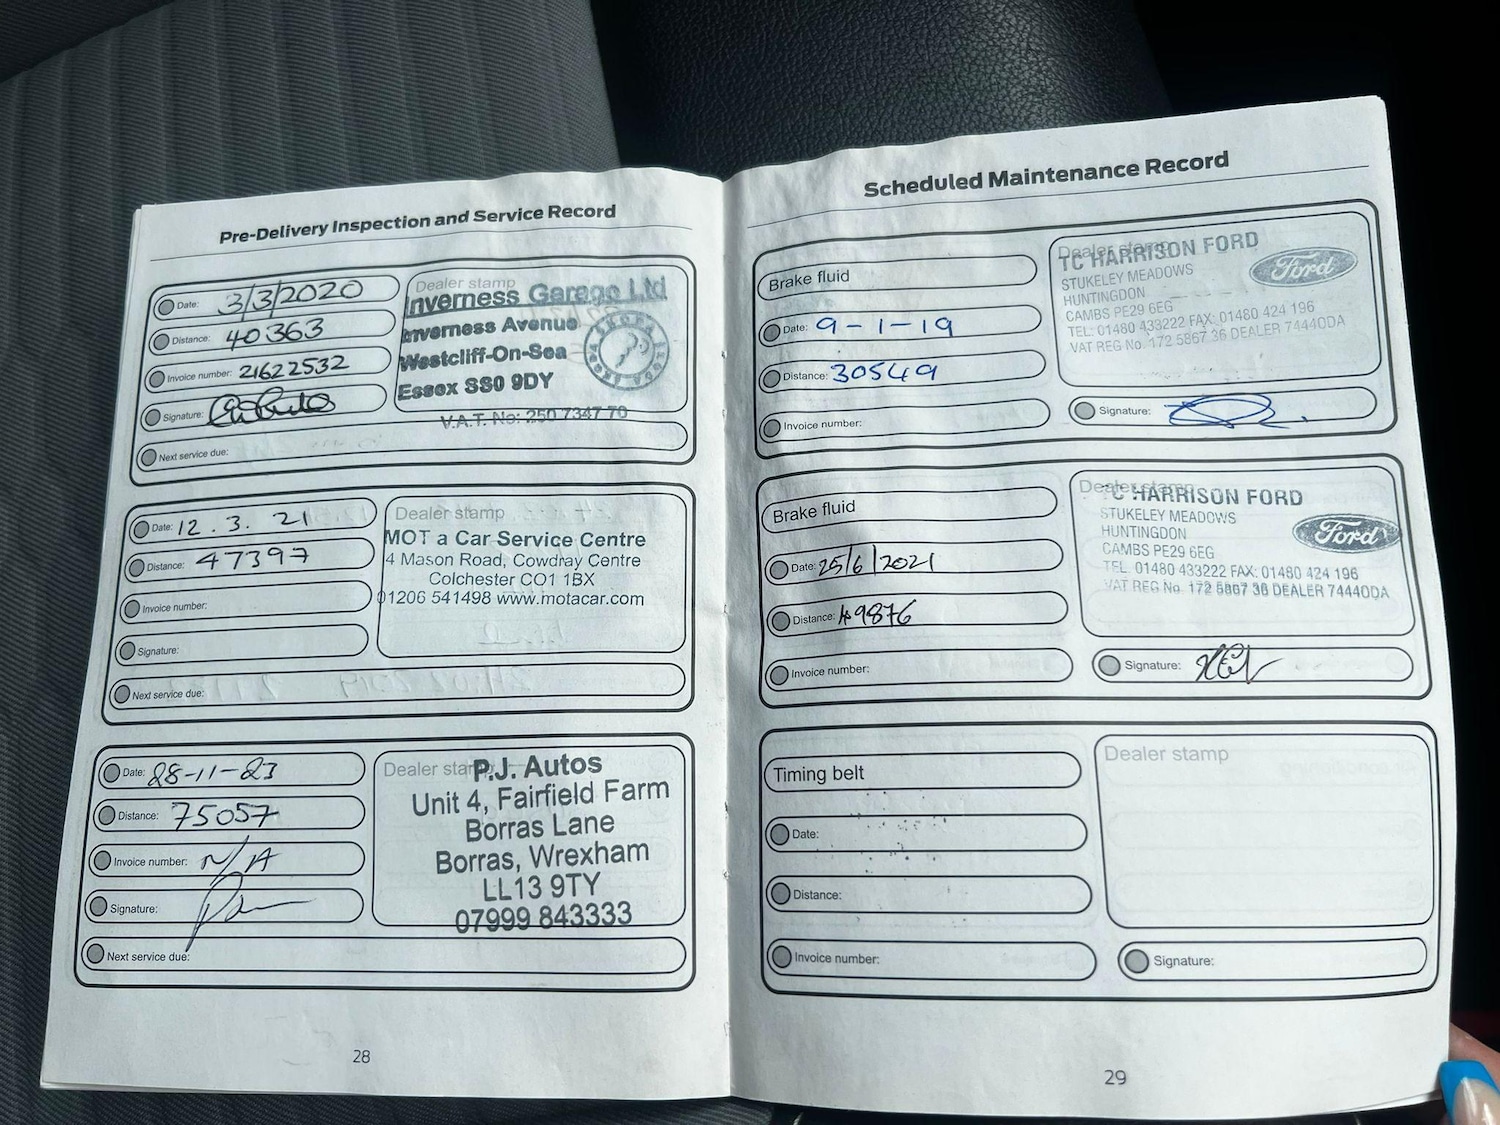 Pre-Delivery Inspection and Service Record
Date: 3/3/2020
Distance: 40363
Invoice number: 21622532
Signature:
Next service due:
Dealer stamp
Inverness Garage Ltd
Inverness Avenue
Westcliff-On-Sea
Essex SS0 9DY
V.A.T. No: 250 7347 70
Date: 12. 3. 21
Distance: 47397
Invoice number:
Signature:
Next service due:
Dealer stamp
MOT a Car Service Centre
4 Mason Road, Cowdray Centre
Colchester CO1 1BX
01206 541498 www.motacar.com
Date: 28-11-23
Distance: 75057
Invoice number: N/A
Signature:
Next service due:
Dealer stamp
P.J. Autos
Unit 4, Fairfield Farm
Borras Lane
Borras, Wrexham
LL13 9TY
07999 843333
28
Scheduled Maintenance Record
Brake fluid
Date: 9-1-19
Distance: 30549
Invoice number:
Dealer stamp
TC HARRISON FORD
STUKELEY MEADOWS
HUNTINGDON
CAMBS PE29 6EG
TEL: 01480 433222 FAX: 01480 424 196
VAT REG No. 172 5867 36 DEALER 74440DA
Ford
Signature:
Brake fluid
Date: 25/6/2021
Distance: 49876
Invoice number:
Dealer stamp
TC HARRISON FORD
STUKELEY MEADOWS
HUNTINGDON
CAMBS PE29 6EG
TEL. 01480 433222 FAX: 01480 424 196
VAT REG No. 172 5867 36 DEALER 74440DA
Ford
Signature:
Timing belt
Date:
Distance:
Invoice number:
Dealer stamp
Signature:
29